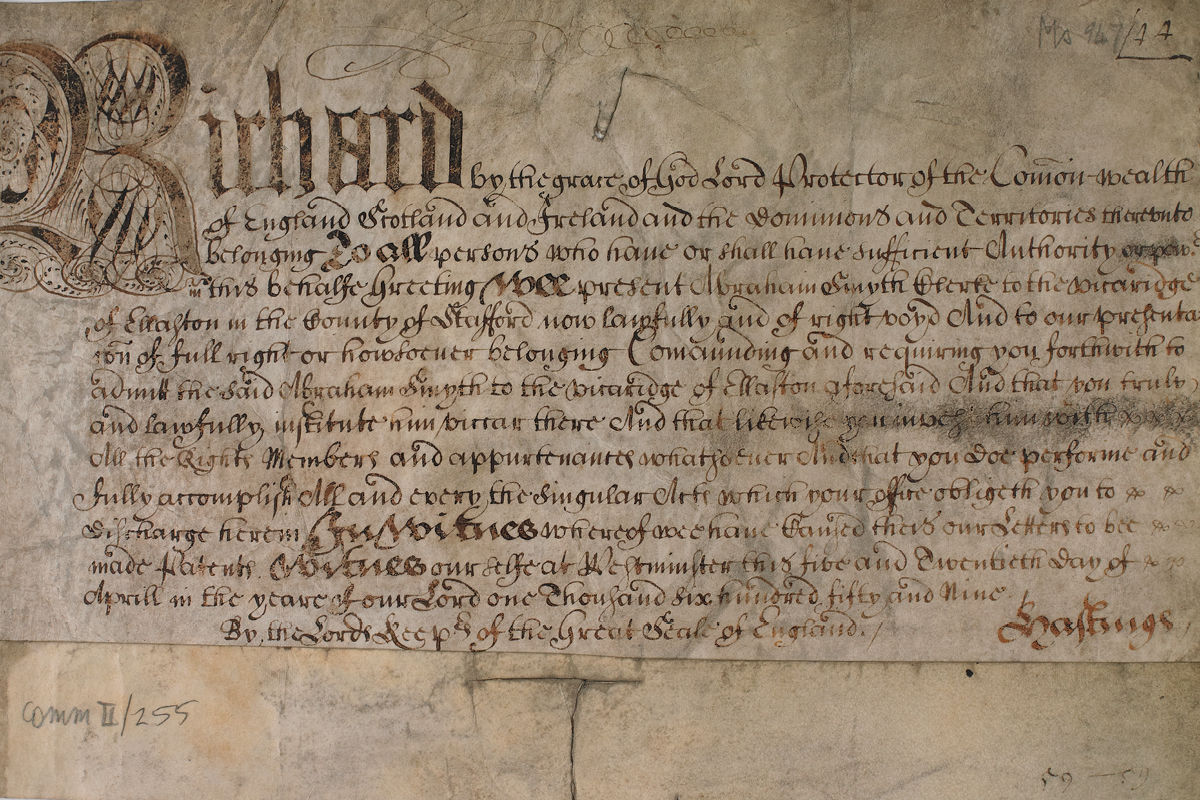 Ms 947/44
Richard by the grace of God Lord Protector of the Com̄on-wealth
of England Scotland and Ireland and the Dominions and Territories thereunto
belonging To all persons who have or shall have sufficient Authority or power
in this behalfe Greeting Wee present Abraham Smyth Clerke to the vicaridge
of Ellaston in the County of Stafford now lawfully and of right voyd And to our presenta
con̄ of full right or howsoever belonging Com̄aunding and requiring you forthwith to
admitt the said Abraham Smyth to the vicaridge of Ellaston aforesaid And that you truly
and lawfully institute him viccar there And that likewise you invest him with
All the Rights Members and appurtenances whatsoever And that you doe performe and
fully accomplish All and every the singular Acts which your office obligeth you to
discharge herein In Witnes whereof wee have Caused theis our Letters to bee
made Patents. Witnes our selfe at Westminster this five and Twentieth day of
Aprill in the yeare of our Lord one Thousand six hundred fifty and Nine
By the Lords Keeprs of the Great Seale of England.
Hastings
Comm II/255
59 — 59